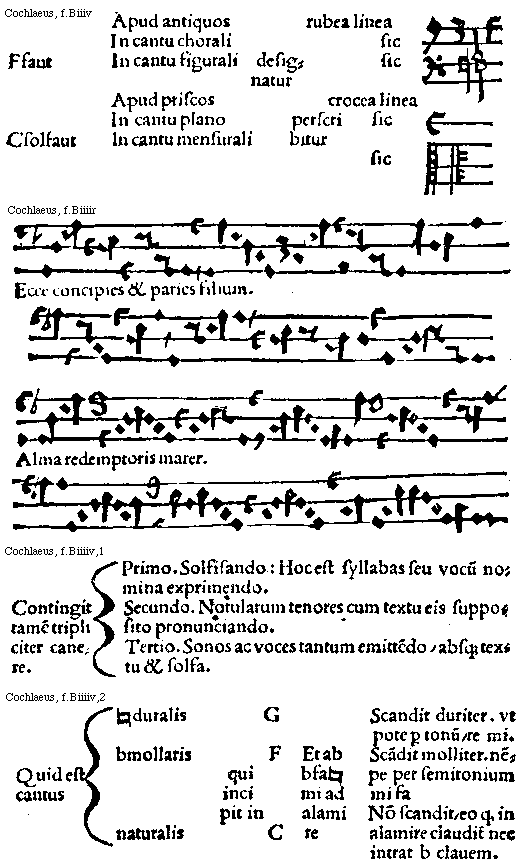 Cochlaeus, f.Biiiv
Apud antiquos rubea linea
In cantu chorali sic
Ffaut In cantu figurali deſig⸗ sic
natur
Apud priſcos crocea linea
In cantu plano perſcri ſic
Cſolfaut In cantu menſurali bitur
ſic
Cochlaeus, f.Biiiir
Ecce concipies & paries filium.
Alma redemptoris mater.
Cochlaeus, f.Biiiiv,1
Primo. Solfiſando : Hoc eſt ſyllabas ſeu vocū no⸗
mina exprimendo.
Contingit Secundo. Notularum tenores cum textu eis ſuppo⸗
tamē tripli ſito pronunciando.
citer cane⸗ Tertio. Sonos ac voces tantum emittēdo / abſq; tex⸗
re. tu & ſolfa.
Cochlaeus, f.Biiiiv,2
♮duralis G Scandit duriter. vt
pote p tonū/re mi.
bmollaris F Et ab Scādit molliter. nē⸗
Quid eſt qui bfa♮ pe per ſemitonium
cantus inci mi ad mi fa
pit in alami Nō ſcandit/eo q, in
naturalis C re alamire claudit nec
intrat b clavem.